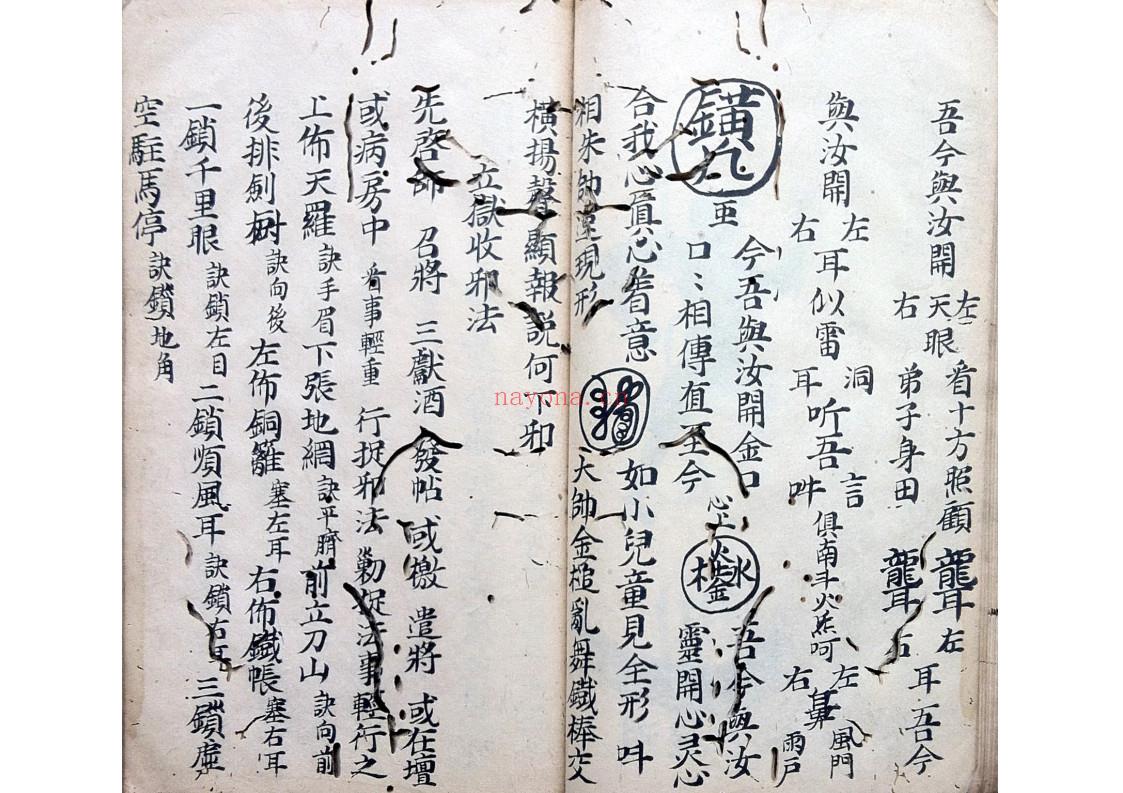 吾今與汝開 左右 天眼 看十方照顧 弟子身田 聾聾 左右 耳吾今
與汝開 左右 耳似雷 洞耳 听吾言 吽 俱南斗火炁呵 左右 鼻 風門雨戶
今吾與汝開金口 吾今與汝
亜 口〻相傳直至今 心上 火水木金 靈開心灵心
合我心眞心看意 如小兒童見全形 吽
相朱帥 現形 大帥金槌亂舞鐵棒交
橫揚聲顯報説何下卭
立獄收邪法
先啓師 召將 三獻酒 發帖 或檄 遣將 或在壇
或病房中 看事輕重 行捉邪法 勦捉法事輕行之
上佈天羅 訣手眉 下張地網 訣平臍 前立刀山 訣向前
後排劍樹 訣向後 左佈銅籬 塞左耳 右佈鐵帳 塞右耳
一鎖千里眼 訣鎖左目 二鎖順風耳 訣鎖右耳 三鎖虛
空駐馬停 訣鎖地角
nayona.cn